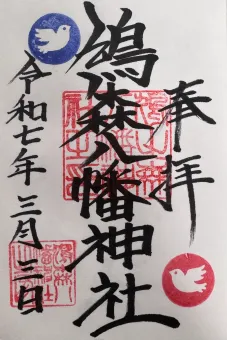 奉拝
鳩森八幡神社
令和七年三月三日